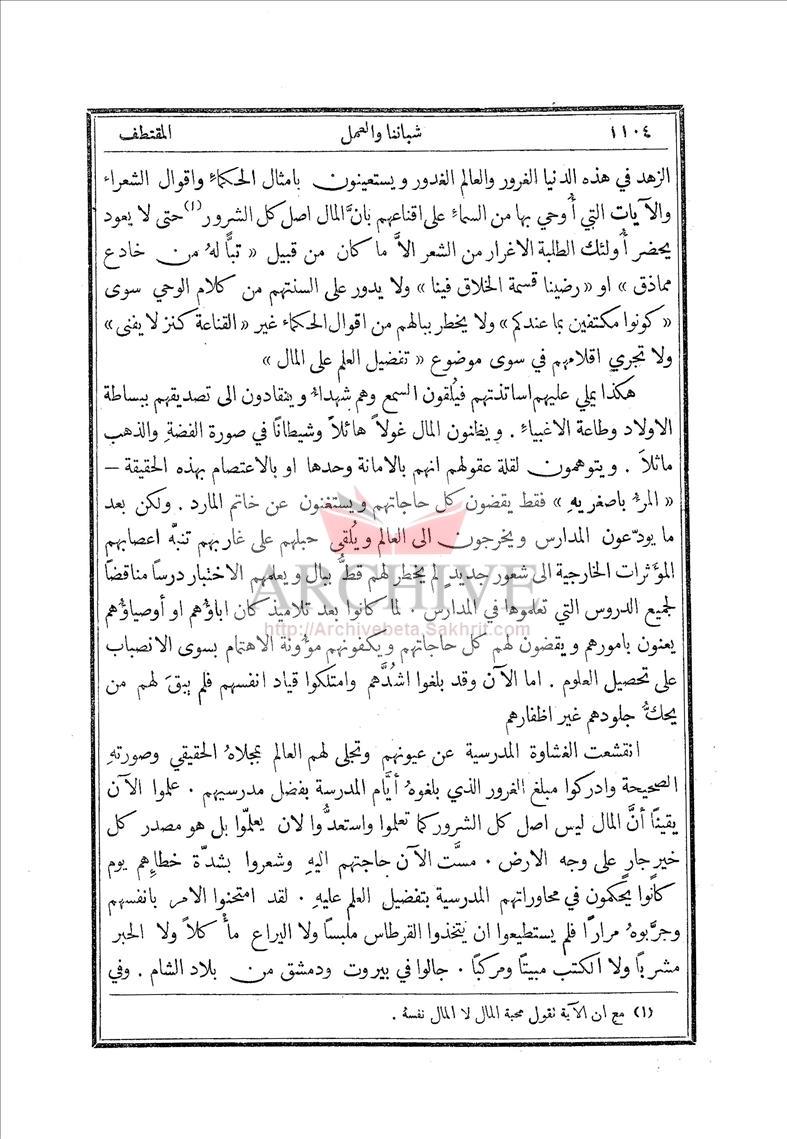 ١١٠٤ شباننا والعمل المقتطف
الزهد في هذه الدنيا الغرور والعالم الغدور ويستعينون بامثال الحكماء واقوال الشعراء
والآيات التي أُوحي بها من السماء على اقناعهم بانَّ المال اصل كل الشرور(١) حتى لا يعود
يحضر أُولئك الطلبة الاغرار من الشعر الاَّ ما كان من قبيل « تبًّا لهُ من خادع
مماذق » او « رضينا قسمة الخلاق فينا » ولا يدور على السنتهم من كلام الوحي سوى
« كونوا مكتفين بما عندكم » ولا يخطر ببالهم من اقوال الحكماء غير « القناعة كنز لا يفنى »
ولا تجري اقلامهم في سوى موضوع « تفضيل العلم على المال »
هكذا يملي عليهم اساتذتهم فيُلقون السمع وهم شهداء وينقادون الى تصديقهم ببساطة
الاولاد وطاعة الاغبياء . ويظنون المال غولاً هائلاً وشيطانًا في صورة الفضة والذهب
ماثلاً . ويتوهمون لقلة عقولهم انهم بالامانة وحدها او بالاعتصام بهذه الحقيقة –
« المرء باصغريهِ » فقط يقضون كل حاجاتهم ويستغنون عن خاتم المارد . ولكن بعد
ما يودّعون المدارس ويخرجون الى العالم ويُلقى حبلهم على غاربهم تنبّه اعصابهم
المؤثرات الخارجية الى شعور جديدٍ لم يخطر لهم قطُّ ببال ويعلمهم الاختبار درسًا مناقضًا
لجميع الدروس التي تعلموها في المدارس . لما كانوا بعد تلاميذ كان اباؤُهم او أوصياؤُهم
يعنون بامورهم ويقضون لهم كل حاجاتهم ويكفونهم مؤُونة الاهتمام بسوى الانصباب
على تحصيل العلوم . اما الآن وقد بلغوا اشُدَّهم وامتلكوا قياد انفسهم فلم يبقَ لهم من
يحكُّ جلودهم غير اظفارهم
انقشعت الغشاوة المدرسية عن عيونهم وتجلى لهم العالم بمجلاهُ الحقيقي وصورتهِ
الصحيحة وادركوا مبلغ الغرور الذي بلغوهُ أيَّام المدرسة بفضل مدرسيهم . علموا الآن
يقينًا أنَّ المال ليس اصل كل الشرور كما تعلموا واستعدُّوا لان يعلّموا بل هو مصدر كل
خيرٍ جارٍ على وجه الارض . مسَّت الآن حاجتهم اليهِ وشعروا بشدّة خطإِهم يوم
كانوا يحكمون في محاوراتهم المدرسية بتفضيل العلم عليهِ . لقد امتحنوا الامر بانفسهم
وجرَّبوهُ مرارًا فلم يستطيعوا ان يتخذوا القرطاس ملبسًا ولا اليراع مأْكلاً ولا الحبر
مشربًا ولا الكتب مبيتًا ومركبًا . جالوا في بيروت ودمشق من بلاد الشام . وفي
(١) مع ان الآية تقول محبة المال لا المال نفسهُ .
ARCHIVE
http://Archivebeta.Sakhrit.com